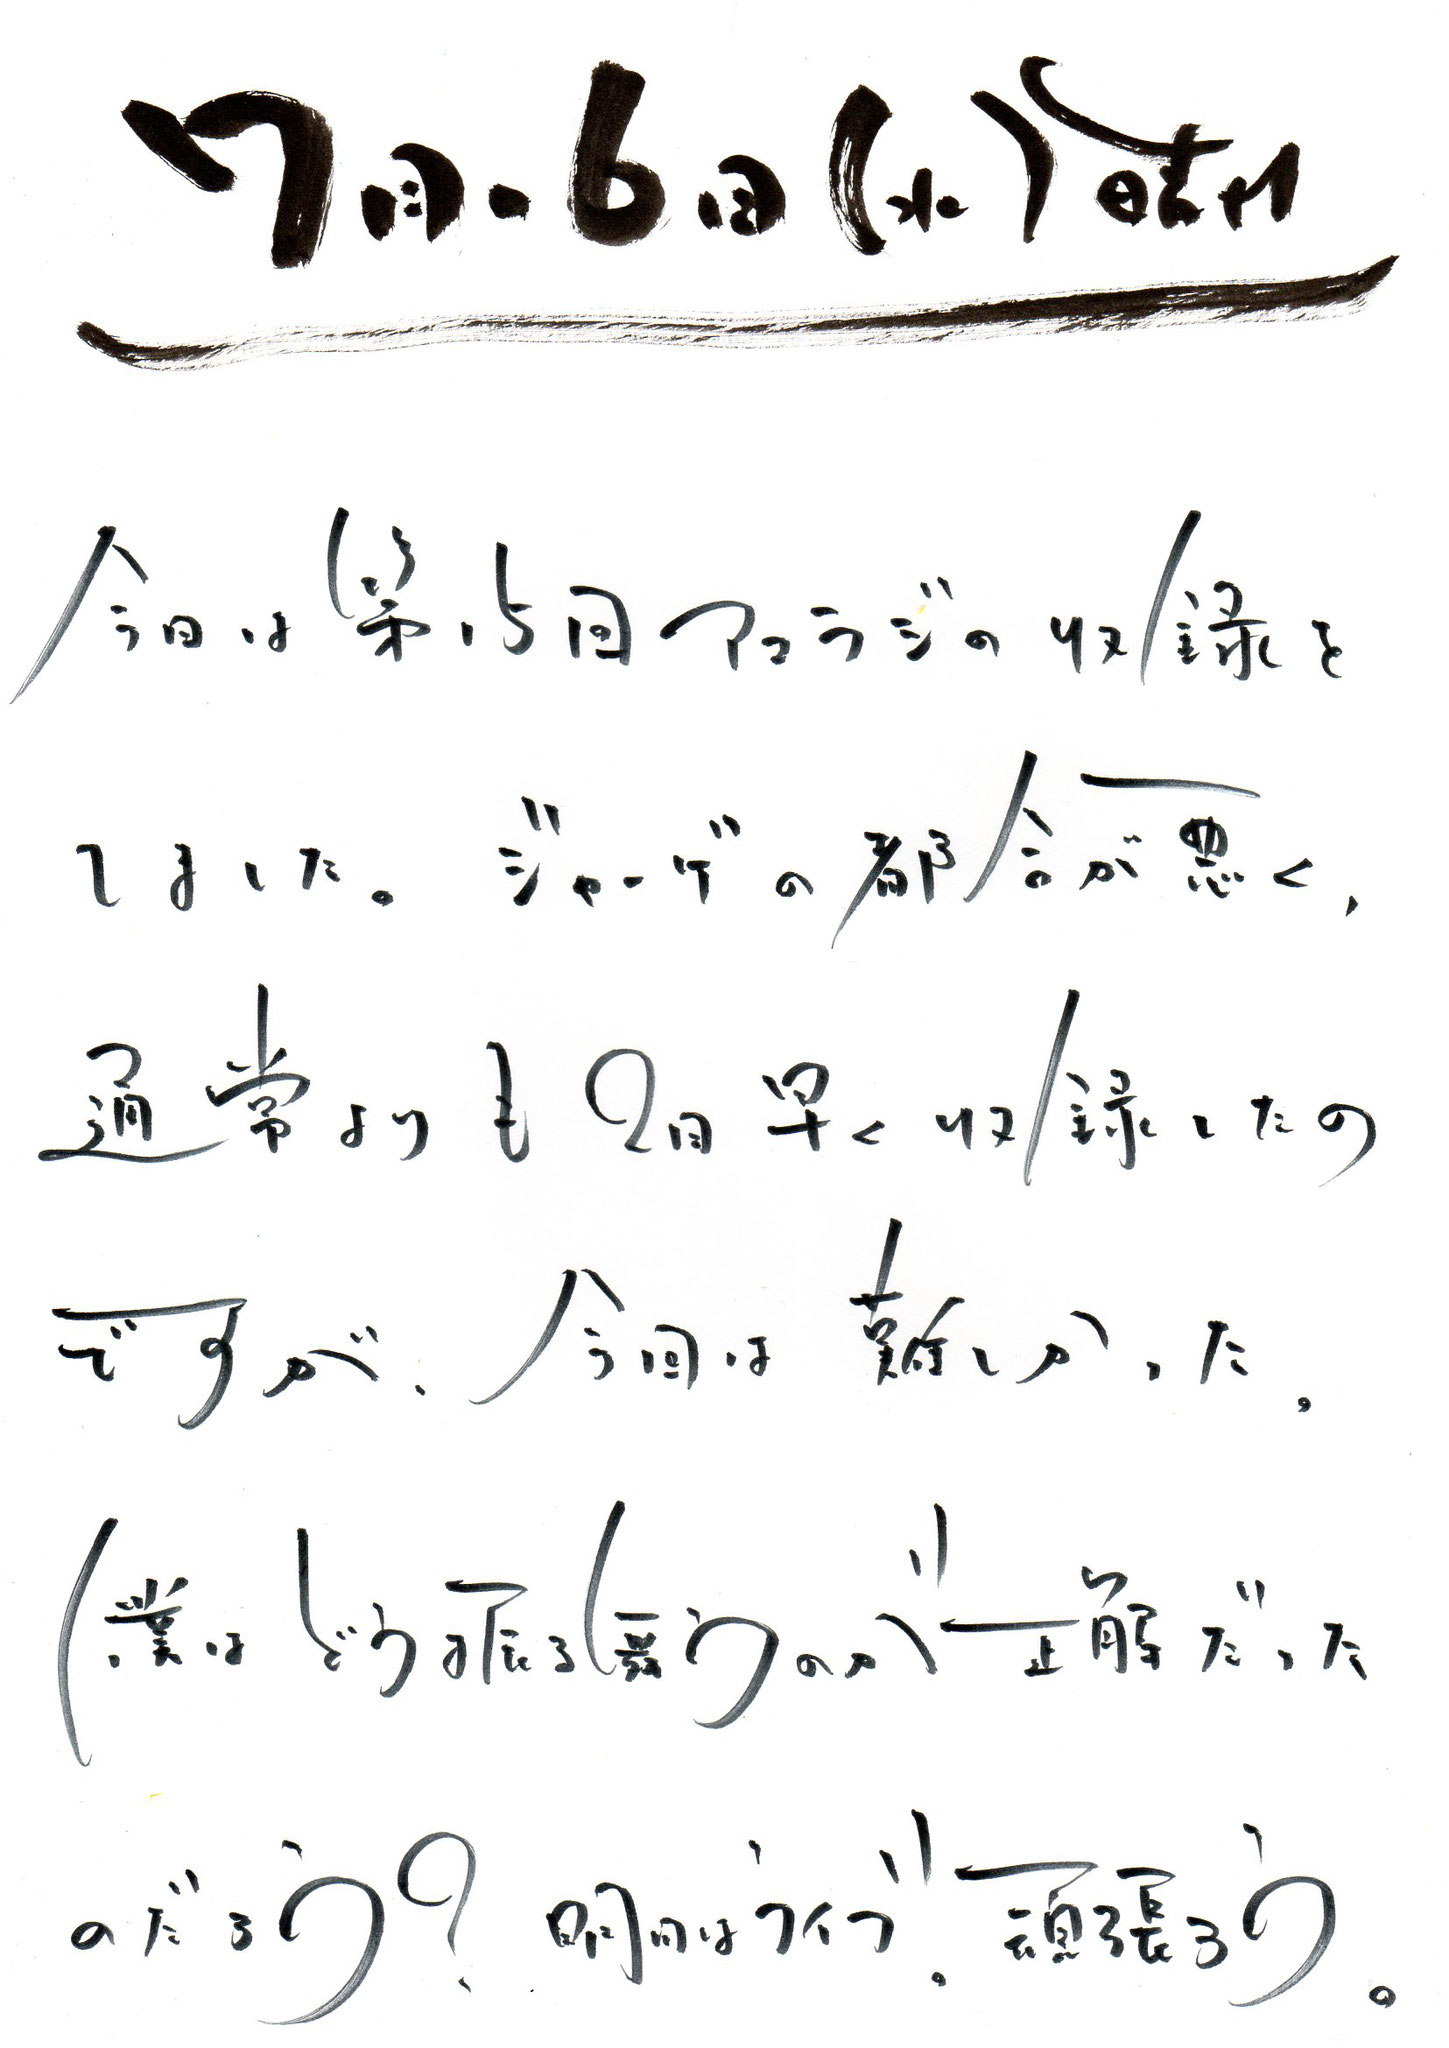 7月・6日(水)晴れ
今日は第15回アコラジの収録を
しました。ジャーゲの都合が悪く、
通常よりも2日早く収録したの
ですが、今回は難しかった。
僕はどう振る舞うのが正解だった
のだろう?明日はライブ。頑張ろう。